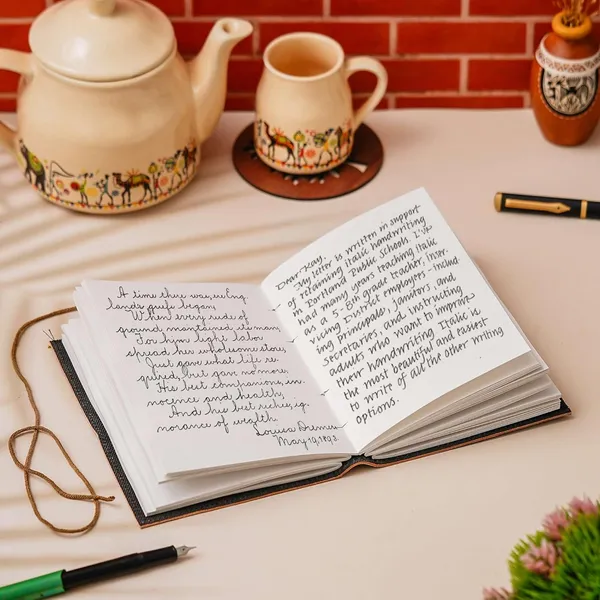 A time there was, ere Eng-
lands griefs began,
When every rude of
ground maintained its man;
For him light labor
spread her wholesome store,
Just gave what life re-
quired, but gave no more;
His best companions, in-
nocence and health;
And his best riches, ig-
norance of wealth.
May 19, 1892
Dear Kay,
My letter is written in support
of retaining italic handwriting
in Portland Public Schools. I've
had many years teaching italic
as a 5-8th grade teacher, inser-
vicing District employees - includ
ing principals, janitors, and
secretaries, and instructing
adults who want to improve
their handwriting. Italic is
the most beautiful and easiest
to write of all the other writing
options.